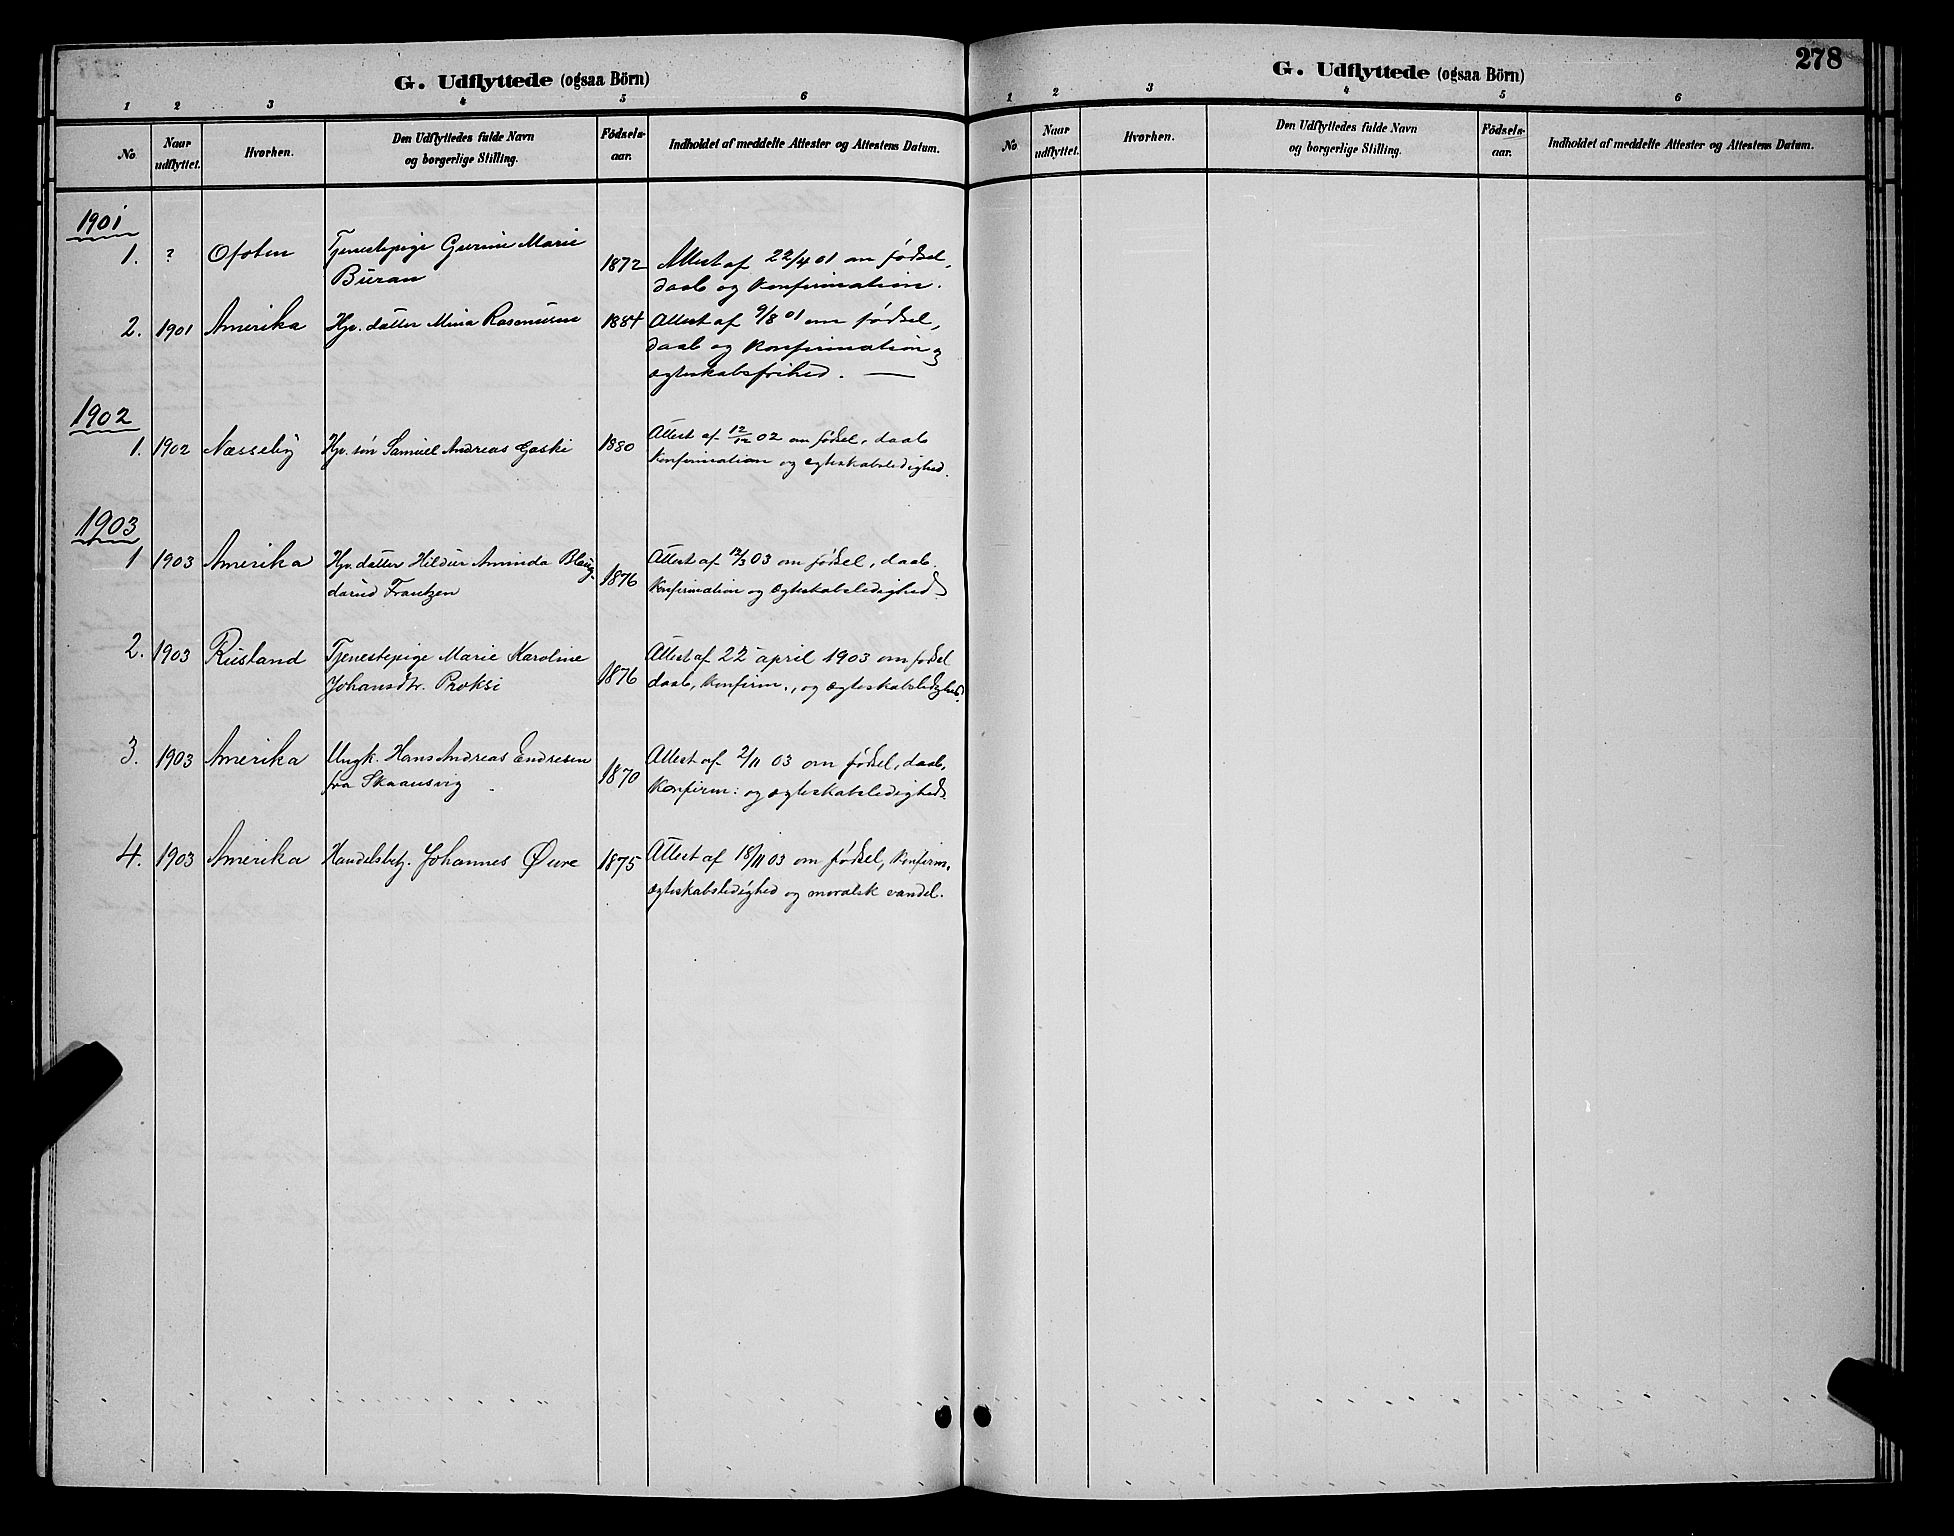 G. Udflyttede (ogsaa Börn)
1 2 3 4 5 6
No. Naar udflyttet. Hvorhen. Den Udflyttedes fulde Navn og borgerlige Stilling. Fødsels-aar. Indholdet af meddelte Attester og Attestens Datum.
1901
1. ? Ofoten Tjenestepige Gurine Marie 1872 Attest af 22/4 01 om fødsel,
Buran daab og konfirmation.
2. 1901 Amerika Hjv. datter Mina Rasmussen 1884 Attest af 9/8 01 om fødsel,
daab og konfirmation og
ægteskabsfrihed. —
1902
1. 1902 Næsseby Hjv. søn Samuel Andreas Gaski 1880 Attest af 12/12 02 om fødsel, daab
konfirmation og ægteskabsledighed.
1903
1 1903 Amerika Hjv. datter Hildur Aminda Blaug- 1876 Attest af 12/3 03 om fødsel, daab.
darud Frantzen konfirmation og ægteskabsledighed
2. 1903 Rusland Tjenestepige Marie Karoline 1876 Attest af 22 april 1903 om fødsel
Johansdtr. Proksi daab, konfirm., og ægteskabsledighed.
3. 1903 Amerika Ungk. Hans Andreas Endresen 1870 Attest af 2/11 03 om fødsel, daab,
fra Skaansvig konfirm: og ægteskabsledighed.
4. 1903 Amerika Handelsbetj. Johannes Øure 1875 Attest af 18/11 03 om fødsel, konfirm.
ægteskabsledighed og moralsk vandel.
278
G. Udflyttede (ogsaa Börn)
1 2 3 4 5 6
No Naar udflyttet. Hvorhen. Den Udflyttedes fulde Navn og borgerlige Stilling. Fødsels-aar. Indholdet af meddelte Attester og Attestens Datum.